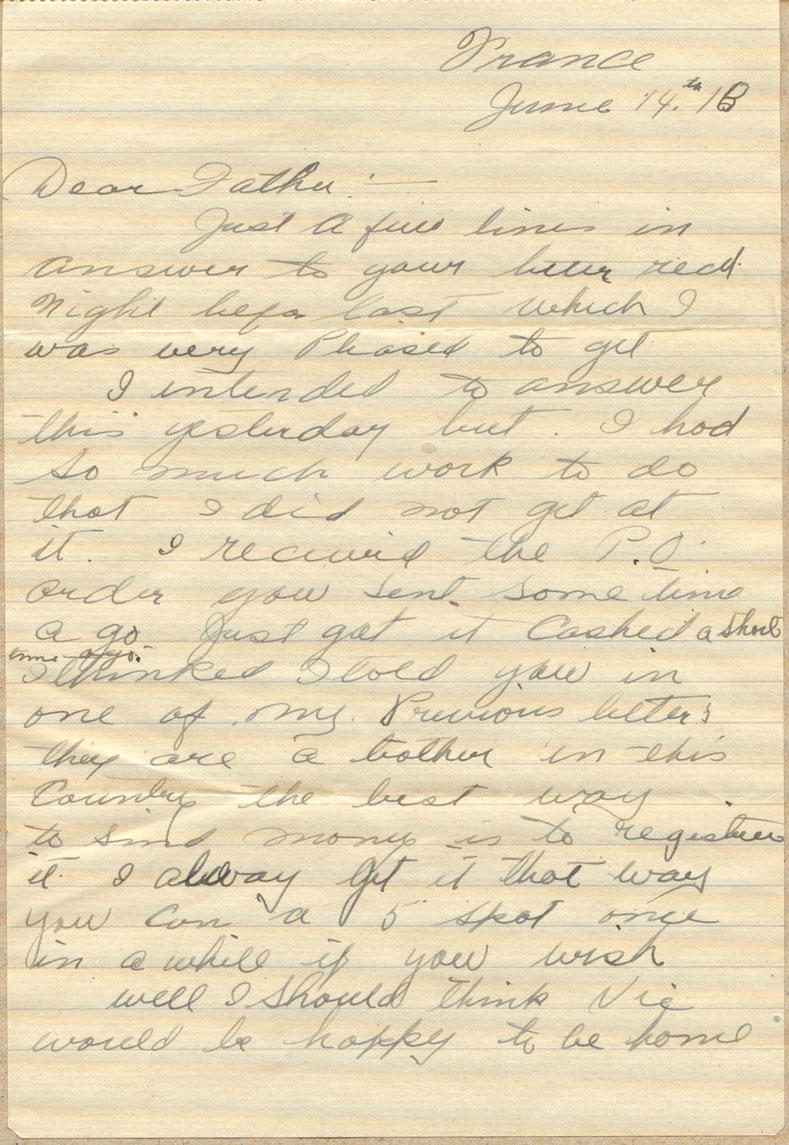 France
June 14.th 18
Dear Father:—
Just A few lines in
answer to your letter recd.
Night befor last which I
was very Pleased to get
I intended to answer
this yesterday but. I had
so much work to do
that I did not get at
it. I recieved the P.O.
order you sent some time
a go Just got it Cashed a short
time ago.
I thinked I told you in
one of my. Previous letters
they are a bother in this
Country the best way
to send mony is to register
it. I alway get it that way
you Can a 5 spot once
in a while if you wish
well I should think Vic
would be happy to be home